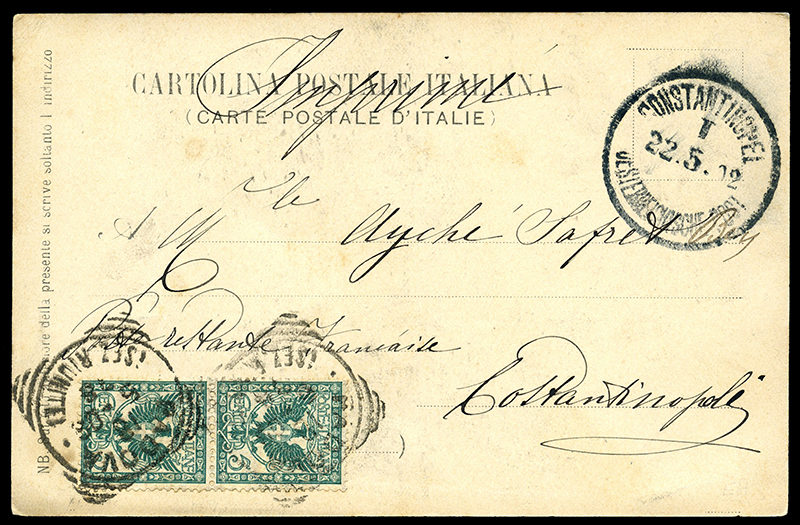 CARTOLINA POSTALE ITALIANA
Imprimé
(CARTE POSTALE D'ITALIE)
CONSTANTINOPEL
I
22.5.02
OESTERREICHISCHE POST
A Mlle Ayché Safvet Bey
Poste restante Française
Costantinopoli
NB. Sul lato anteriore della presente si scrive soltanto l'indirizzo
5
5